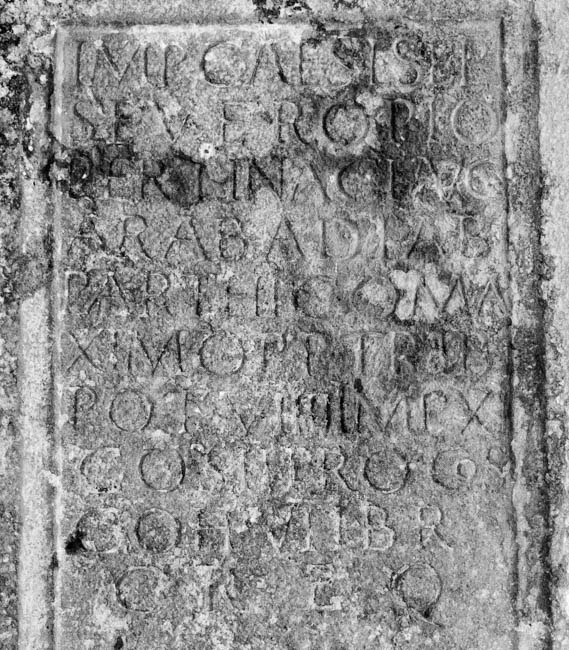 IMP CAES L SEP
SEVERO PIO
PERTINACI AVG
ARAB ADIAB
PARTHICO MA
XIMO P P TRIB
POT VIIII IMP X
COS II PRO
COH VII BR
C R EQ